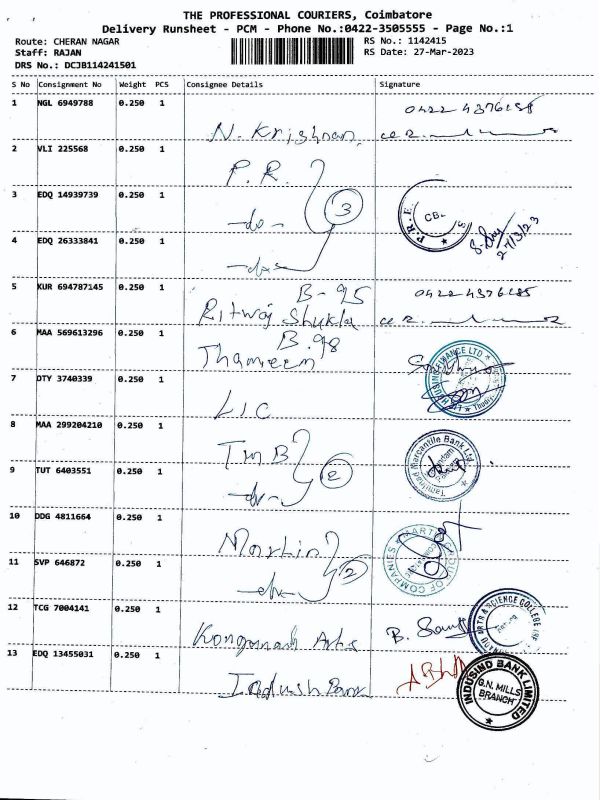 THE PROFESSIONAL COURIERS, Coimbatore
Delivery Runsheet - PCM - Phone No.:0422-3505555 - Page No.:1
Route: CHERAN NAGAR
Staff: RAJAN
DRS No.: DCJB114241501
RS No.: 1142415
RS Date: 27-Mar-2023
S No Consignment No Weight PCS Consignee Details Signature
1 NGL 6949788 0.250 1 N. Krishnan
2 VLI 225568 0.250 1 P.R.
3 EDQ 14939739 0.250 1 -do- 3 P.R.E CB- 27/3/23
4 EDQ 26333841 0.250 1
5 KUR 694787145 0.250 1 B-95 Ritwoj Shukla
6 MAA 569613296 0.250 1 B.98 Thameem
7 DTY 3740339 0.250 1 LIC HOUSING FINANCE LTD
8 MAA 299204210 0.250 1 TMB Tamilnad Mercantile Bank Ltd
9 TUT 6403551 0.250 1 2
10 DDG 4811664 0.250 1 Martin MARTIN GROUP OF COMPANIES
11 SVP 646872 0.250 1 2
12 TCG 7004141 0.250 1 Kongunadu Arts B. ARTS & SCIENCE COLLEGE
13 EDQ 13455031 0.250 1 Indush Bank INDUSIND BANK LIMITED G.N. MILLS BRANCH